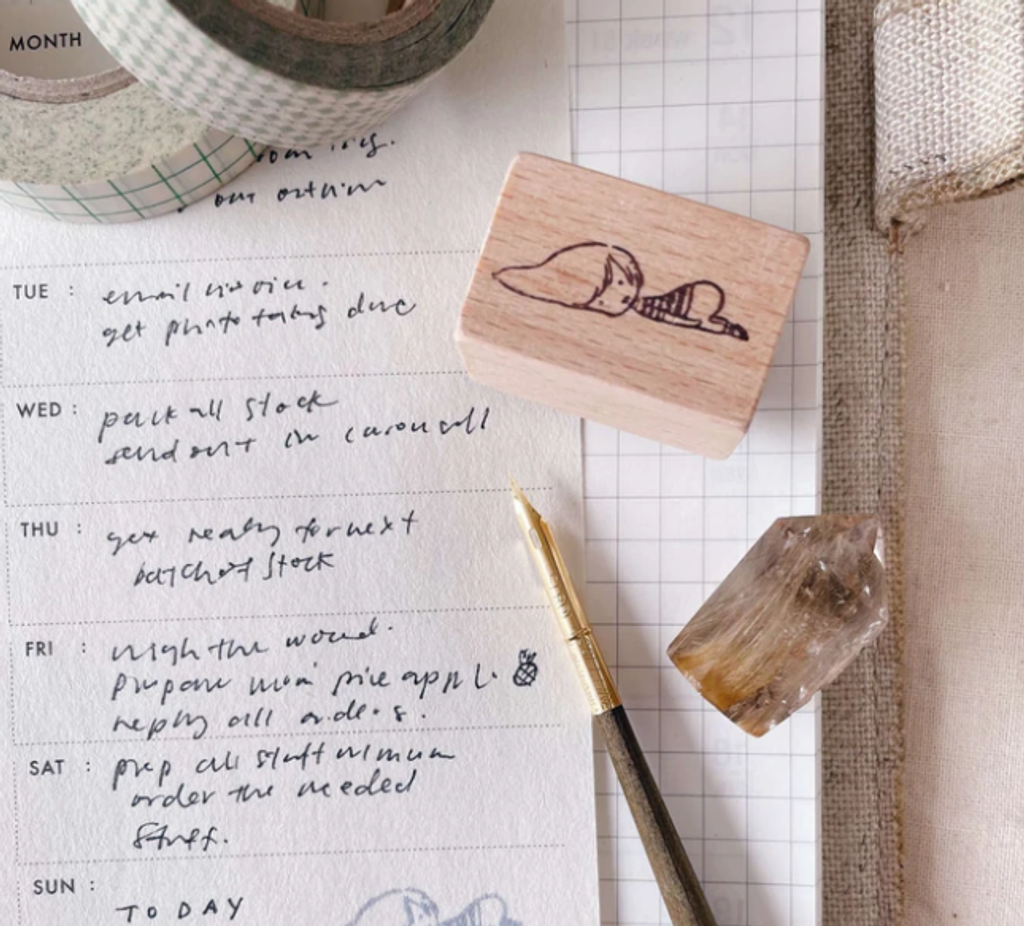 MONTH
TUE :
email invoice.
get photo taking done
WED :
pack all stock
send out in carousell
THU :
get ready for next
batch of stock
FRI :
the
pineapple.
reply all orders.
SAT :
prep all stuff
order the needed
stuff.
SUN :
TODAY